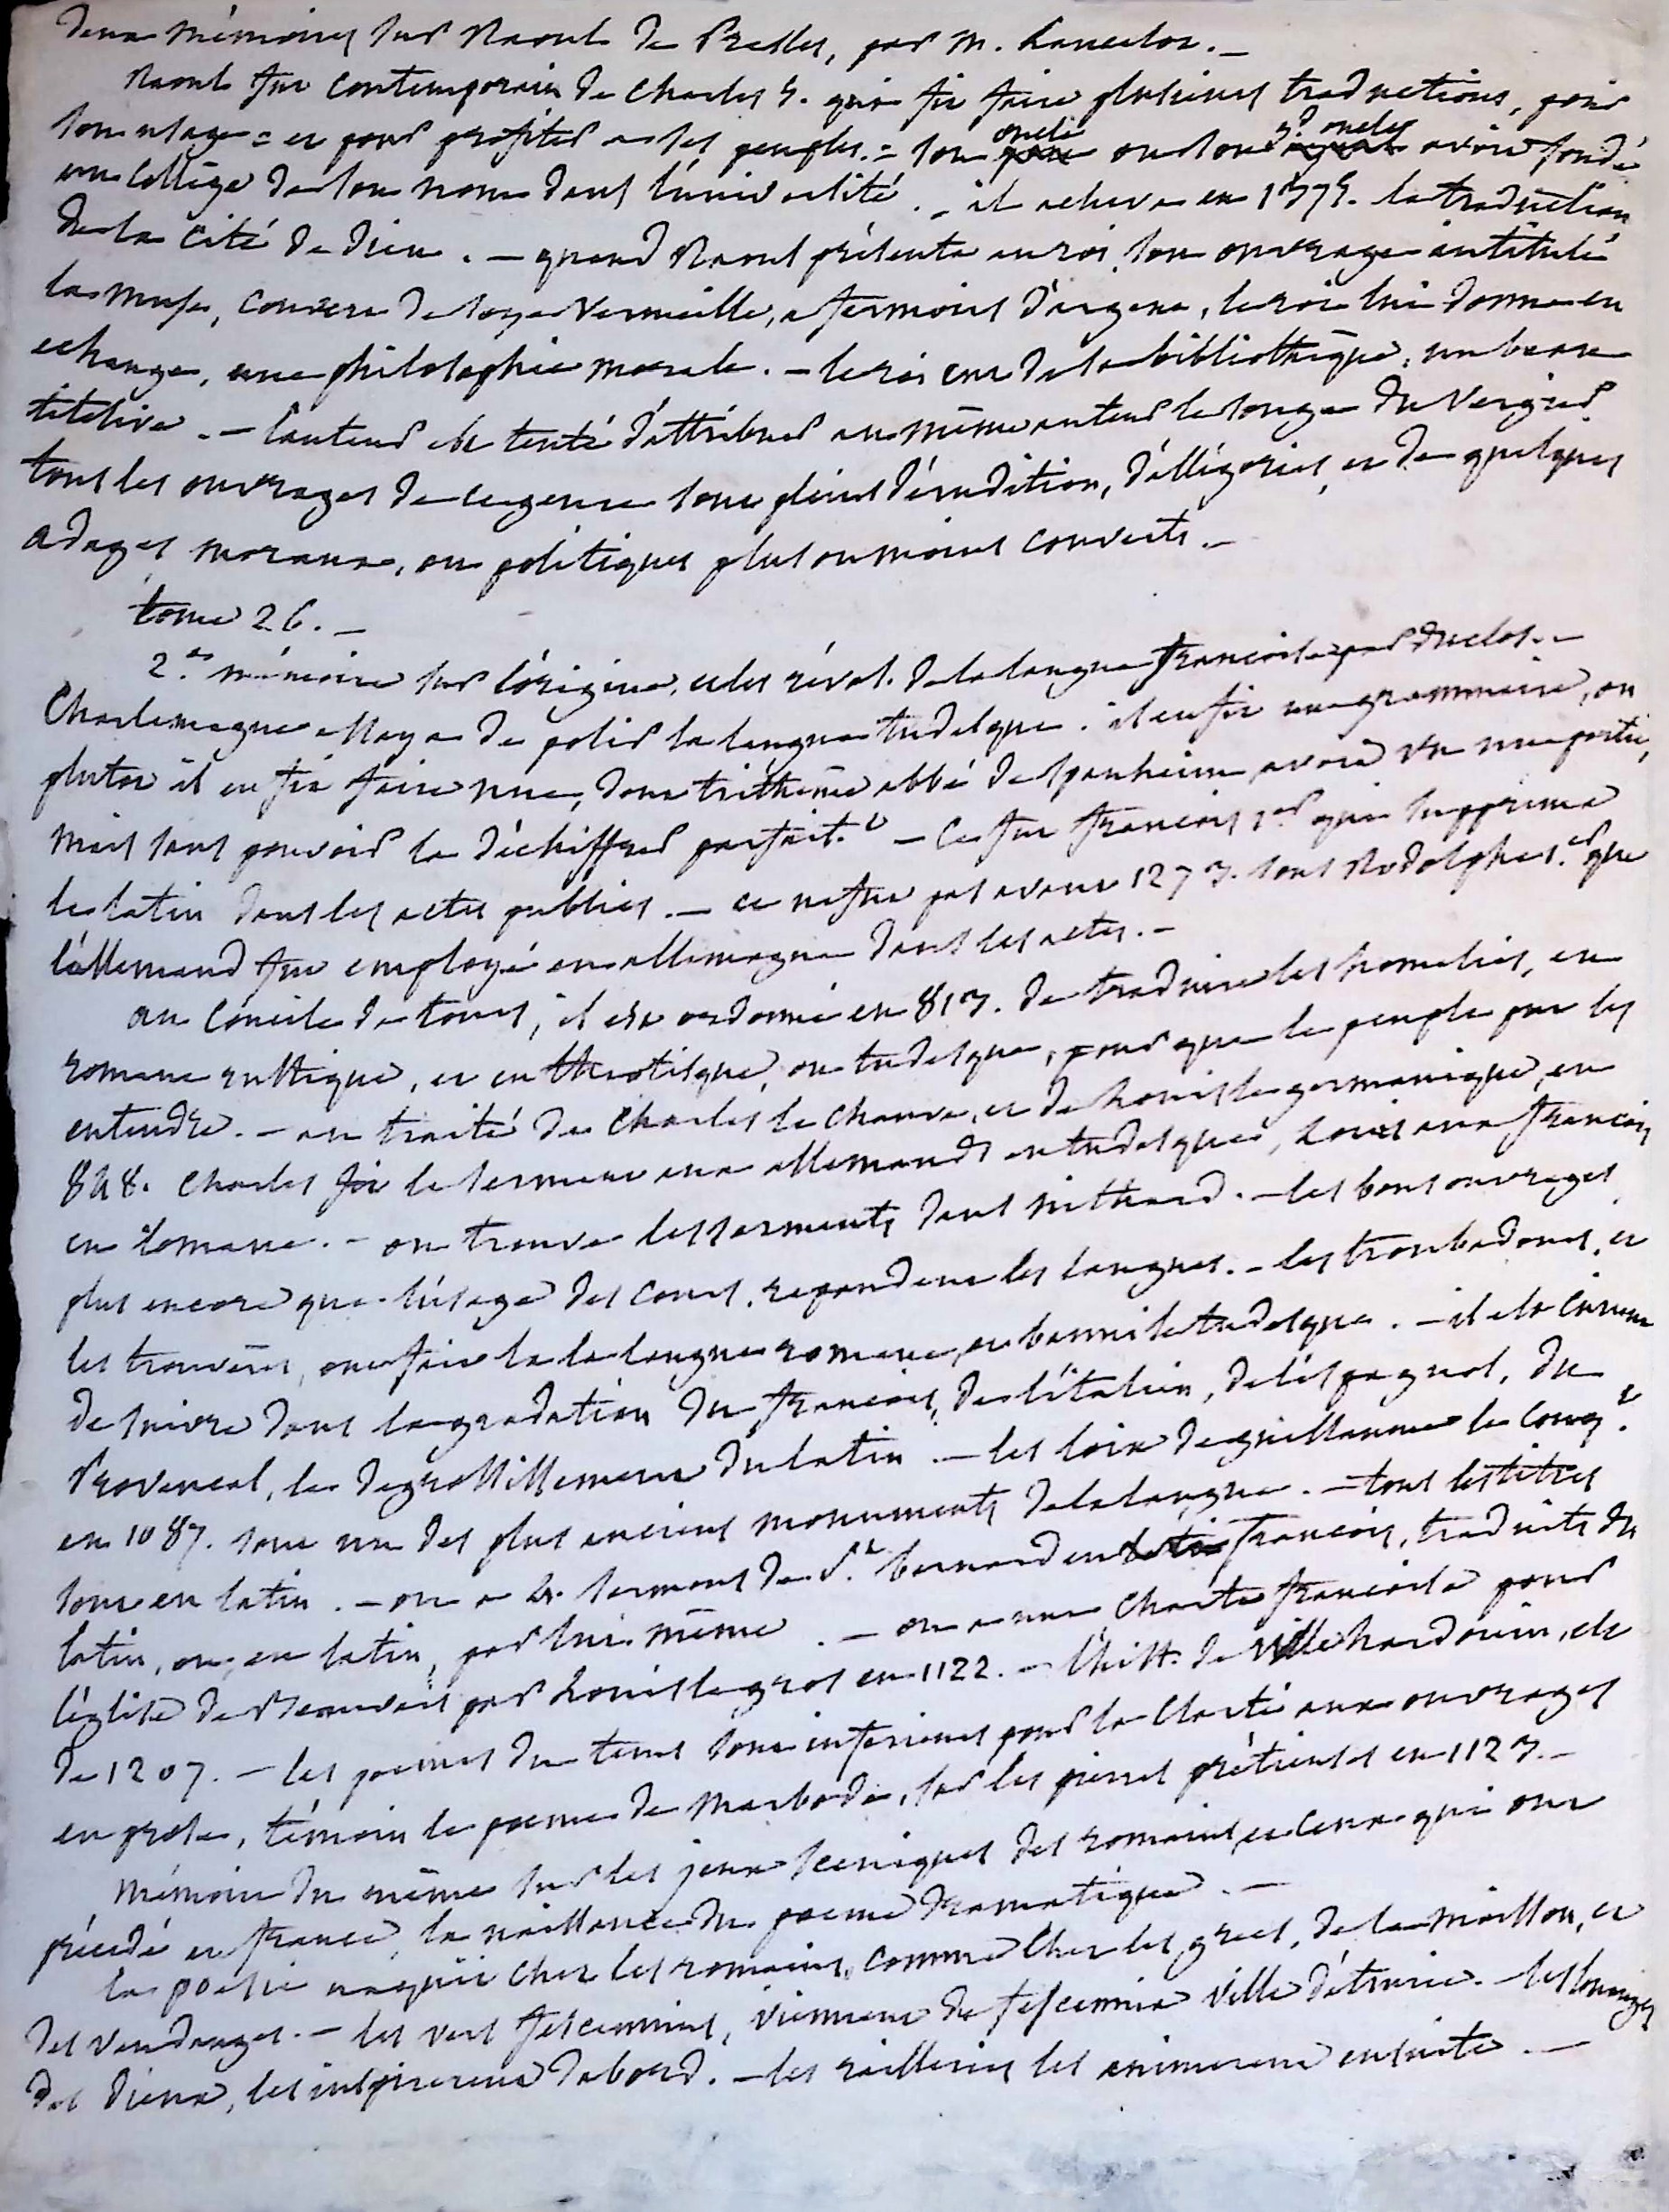 deux mémoires sur Raoul de Presles, par M. Lancelot. —
Raoul fut contemporain de Charles 5. qui fit faire plusieurs traductions, pour
son usage = et pour profiter a ses peuples. = son oncle ou son gd oncle avoit fondé
un collège de son nom dans l'université. — il acheva en 1375. la traduction
de la cité de dieu. — quand Raoul présenta au roi, son ouvrage intitulé
la muse, couvert de soye vermeille, a fermoirs d'argent, le roi lui donna en
echange, une philosophie morale. — le roi eut de sa bibliothèque, un beau
titelive. — l'auteur est tenté d'attribuer au même auteur le songe du Vergier
tous les ouvrages de ce genre sont pleins d'érudition, d'allégories, et de quelques
adages moraux, ou politiques plus ou moins couverts. —
tome 26. —
2.e mémoire sur l'origine, et les révol. de la langue françoise par duclos. —
Charlemagne essaya de polir la langue tudesque. il en fit une grammaire, ou
plutot il en fit faire une, dont trithême abbé de Spanheim avoit vu une partie,
mais sans pouvoir la déchiffrer parfait.t — Ce fut françois 1er qui supprima
le latin dans les actes publics. — ce ne fut pas avant 1273. sous Rodolphe 1.er que
l'allemand fut employé en allemagne dans les actes. —
au Concile de tours, il est ordonné en 813. de traduire les homélies, en
romane rustique, et en theotisque, ou tudesque, pour que le peuple put les
entendre. — au traité de Charles le Chauve, et de Louis le germanique, en
848. Charles fit le serment aux allemands en tudesque, Louis aux françois
en romane. — on trouve les serments dans nithard. — les bons ouvrages
plus encore que l'usage des cours, repandent les langues. — les troubadours, et
les trouvères, ont fait la la langue romane, et banni le tudesque. — il est curieux
de suivre dans la gradation du françois, de l'italien, de l'espagnol, du
Provencal, le degrossissement du latin. — les loix de guillaume le Conq.t
en 1087. sont un des plus anciens monuments de la langue. — tous les titres
sont en latin. — on a 4. sermons de St. bernard en françois, traduits du
latin, ou, en latin, par lui même. — on a une Charte françoise pour
l'église de Beauvais par Louis le gros en 1122. — l'hist. de Villehardouin, est
de 1207. — les poemes du tems sont inférieurs pour la Clarté aux ouvrages
en prose, témoin le poeme de Marbode, sur les pierres prétieuses en 1123. —
Mémoire du même sur les jeux sceniques des romains, et ceux qui ont
précédé en france, la naissance du poeme dramatique. —
la poesie naquit chez les romains, comme Chez les grecs, de la moisson, et
des vendanges. — les vers fescennins, viennent de fescennia ville d'étrurie. — les louanges
des dieux, les inspirerent d'abord. — les railleries les animerent ensuite. —